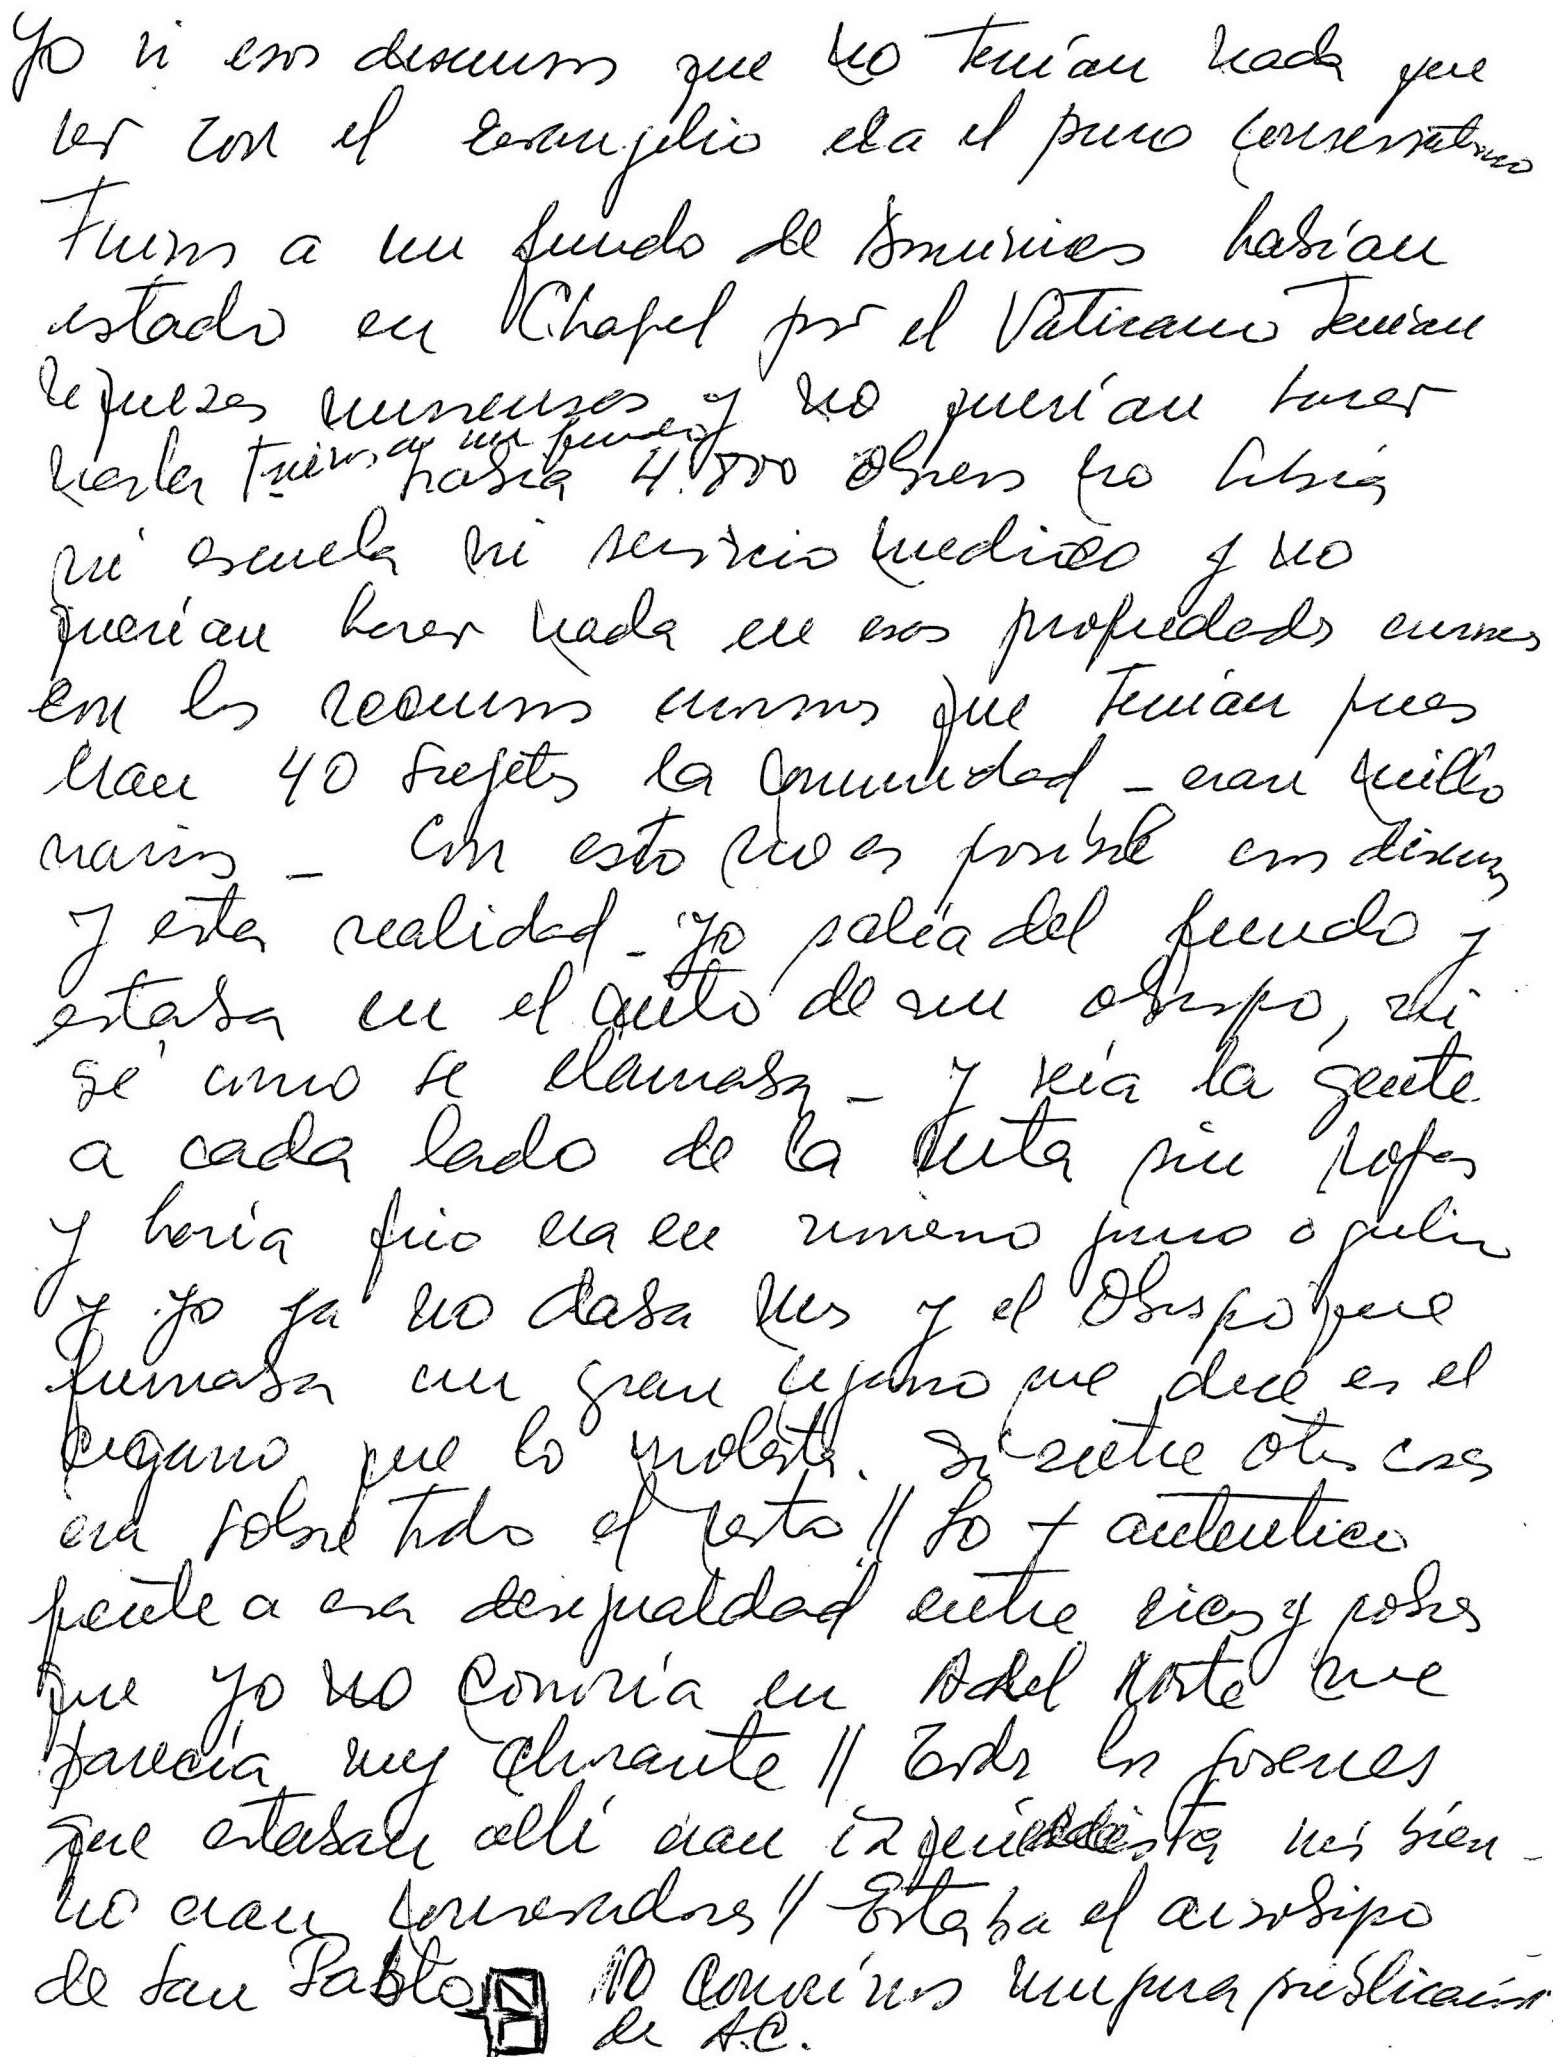 Yo vi esos discursos que no tenían nada que
ver con el evangelio era el puro conservatismo
Fuimos a un fundo de habían
estado en Chapel por el Vaticano Tenían
riquezas inmensas y no querían hacer
nada Fuimos a un fundo había 4.800 obreros no había
ni escuela ni servicio medico y no
querían hacer nada en esas propiedades enormes
con los recursos enormes que tenían pues
eran 40 sujetos la comunidad - eran millo
narios - Con esto no es posible esos discursos
y esta realidad - yo salía del fundo y
estaba en el auto de un obispo, ni
sé como se llamaba - y veía la gente
a cada lado de la ruta sin ropas
y hacía frio era en invierno junio o julio
y yo ya no daba mas y el Obispo que
fumaba un gran cigarro me dice es el
cigarro que lo molesta. Si entre otras cosas
era sobre todo el resto // Lo + autentico
frente a esa desigualdad entre ricos y pobres
que yo no conocía en A del Norte me
parecía muy chocante // Todos los jovenes
que estaban allí eran izquierdista más bien -
no eran conservadores // Estaba el arzobispo
de San Pablo no conocimos ninguna publicación
de A.C.